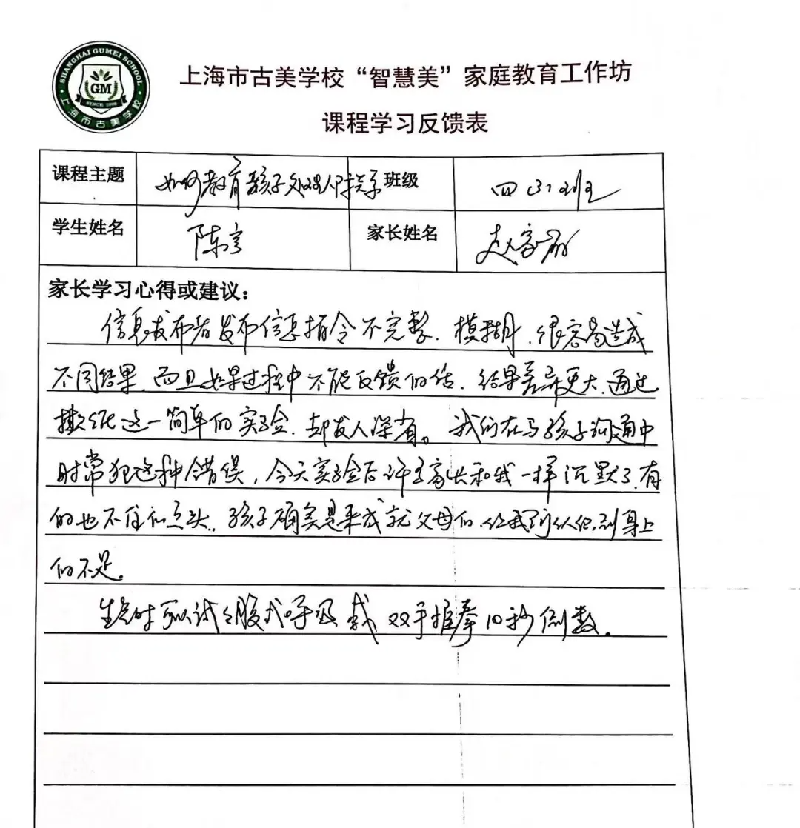 SHANGHAI GUMEI SCHOOL
GM
上海市古美学校
上海市古美学校“智慧美”家庭教育工作坊
课程学习反馈表
课程主题 如何教育孩子处理人际关系 班级 四(3)班
学生姓名 陈 家长姓名 赵家
家长学习心得或建议：
信息发布者发布信息指令不完整、模糊，很容易造成
不同结果，而且如果过程中不能反馈的话，结果差异更大。通过
撕纸这一简单的实验，却发人深省。我们在与孩子沟通中
时常犯这种错误，今天实验后许多家长和我一样沉默了，有
的也不住和点头，孩子确实是来成就父母的，让我们认识到身上
的不足。
生气时可以试试腹式呼吸或双手握拳10秒倒数。